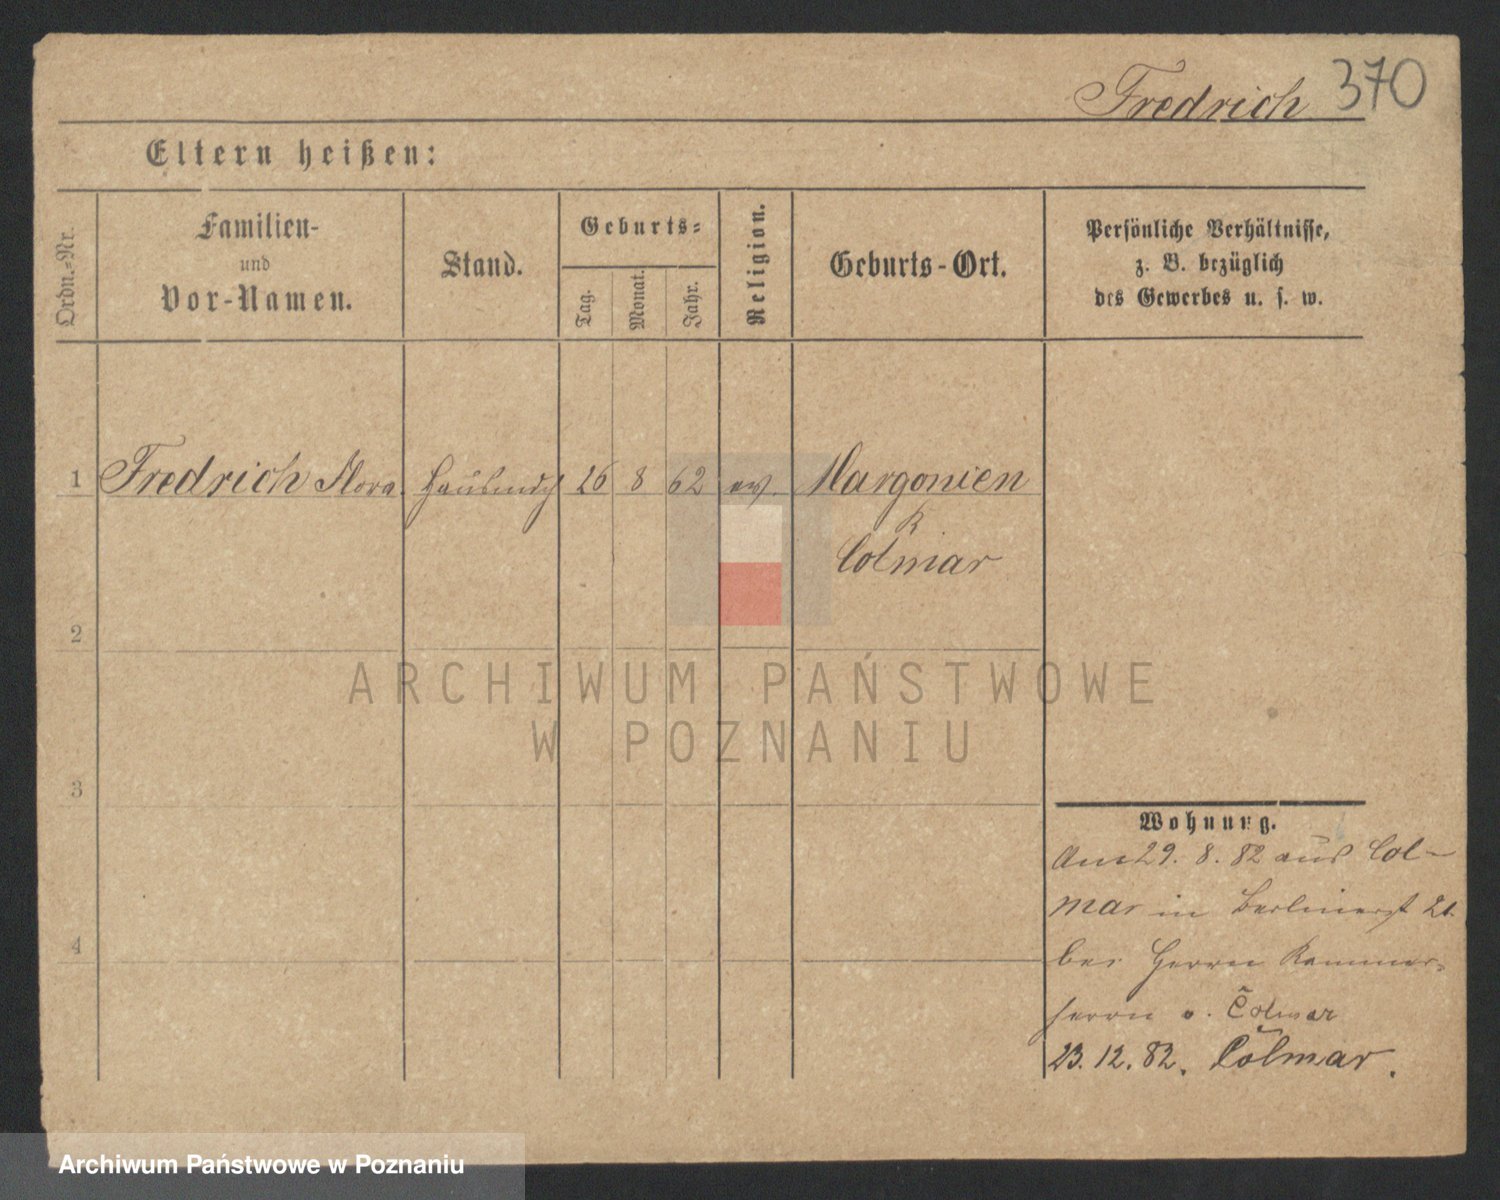 Fredrich 370
Eltern heißen:
Ordn.-Nr.
Familien-
und
Vor-Namen.
Stand.
Geburts-
Tag.
Monat.
Jahr.
Religion.
Geburts-Ort.
Persönliche Verhältnisse,
z. B. bezüglich
des Gewerbes u. s. w.
1 Fredrich Flora 26 8 62 ev. Margonien
K
Colmar
2
3
4
Wohnung.
Am 29. 8. 82 aus Col-
mar in Berlinerst 21.
bei Herrn Kammer-
herrn v. Colmar
23. 12. 82. Colmar.
ARCHIWUM PAŃSTWOWE
W POZNANIU
Archiwum Państwowe w Poznaniu